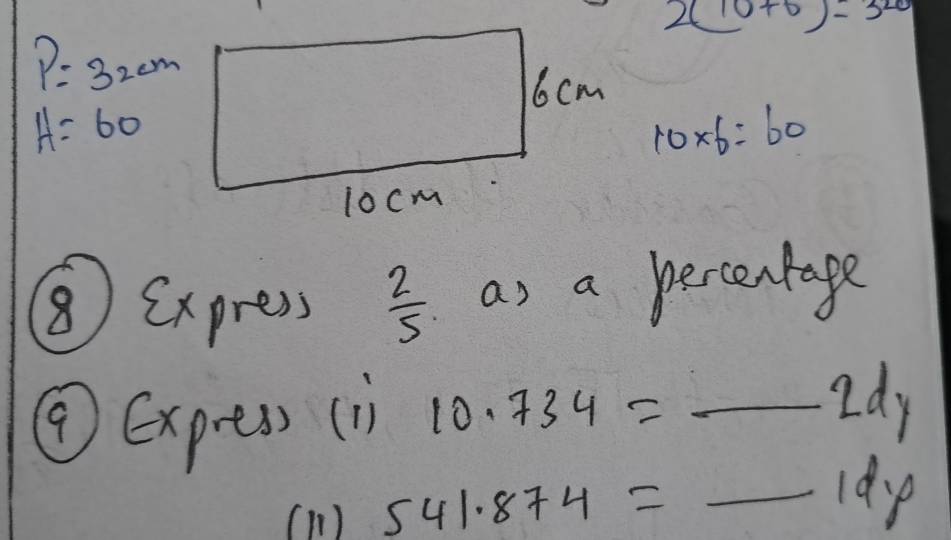 2(10+6)=320
P= 32cm
6cm
A= 60
10×6= 60
10cm
8 Express 2/5 as a percentage
9 Express (i) 10.734 = ___ 2dp
(ii) 541.874 = ___ 1dp